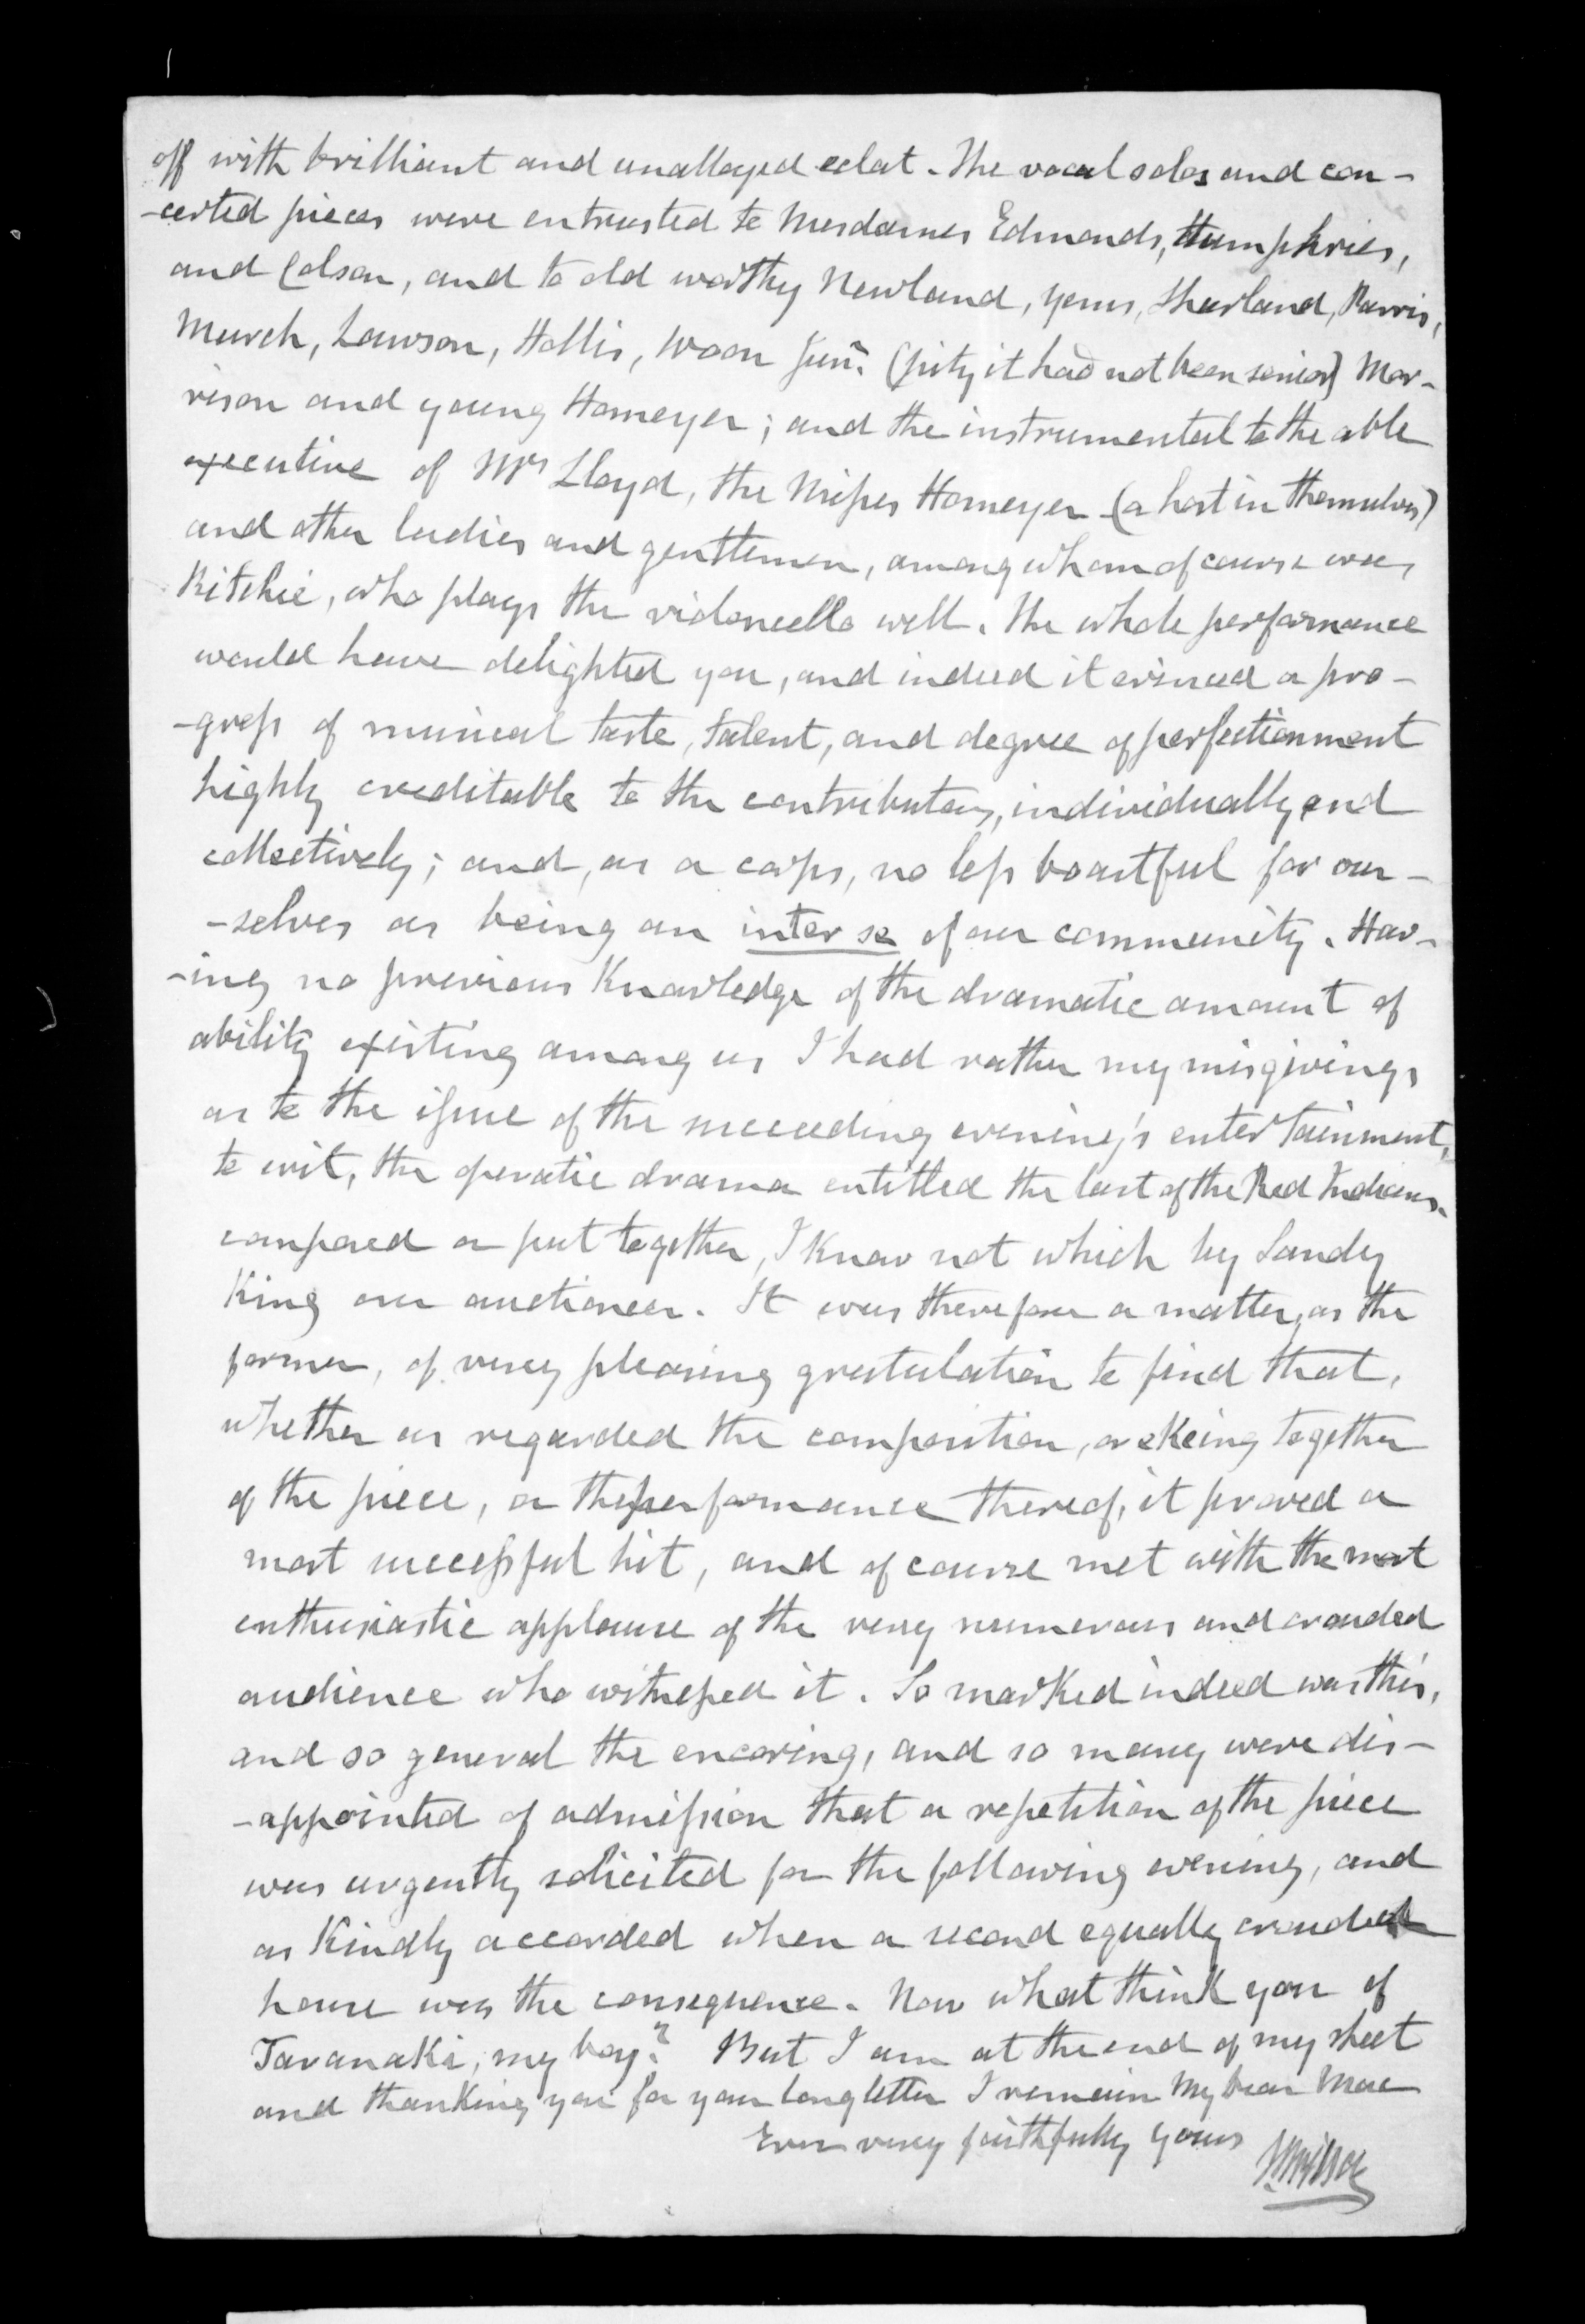 off with brilliant and unalloyed eclat. The vocal solos and con-
-certed pieces were entrusted to Mesdames Edmonds, Humphries,
and Colson, and to old worthy Newland, yems, Shurland, Parris,
Murch, Lawson, Hollis, Woon Junr. (pity it had not been senior) Mor-
rison and young Homeyer; and the instrumental to the able
executive of Mrs Lloyd, the Misses Homeyer (a host in themselves)
and other ladies and gentlemen, among whom of course was
Ritchie, who plays the violoncello well. The whole performance
would have delighted you, and indeed it evinced a pro-
-gress of musical taste, talent, and degree of perfectionment
highly creditable to the contributors, individually and
collectively; and, as a corps, no less boastful for our-
-selves as being an inter se of our community. Hav-
-ing no previous Knowledge of the dramatic amount of
ability existing among us I had rather my misgivings
as to the issue of the succeeding evening's entertainment,
to wit, the operatic drama entitled the last of the Red Indians.
composed or put together, I Know not which by Sandy
King our auctioneer. It was therefore a matter, as the
former, of very pleasing gratulation to find that,
whether as regarded the composition, or eKeing together
of the piece, or the performance thereof, it proved a
most successful hit, and of course met with the most
enthusiastic applause of the very numerous and crowded
audience who witnessed it. So marKed indeed was this,
and so general the encoring, and so many were dis-
-appointed of admission that a repetition of the piece
was urgently solicited for the following evening, and
as Kindly accorded when a second equally crowded
house was the consequence. Now what think you of
TaranaKi, my boy? But I am at the end of my sheet
and thanKing you for your long letter I remain My Dear Mac
Ever very faithfully yours